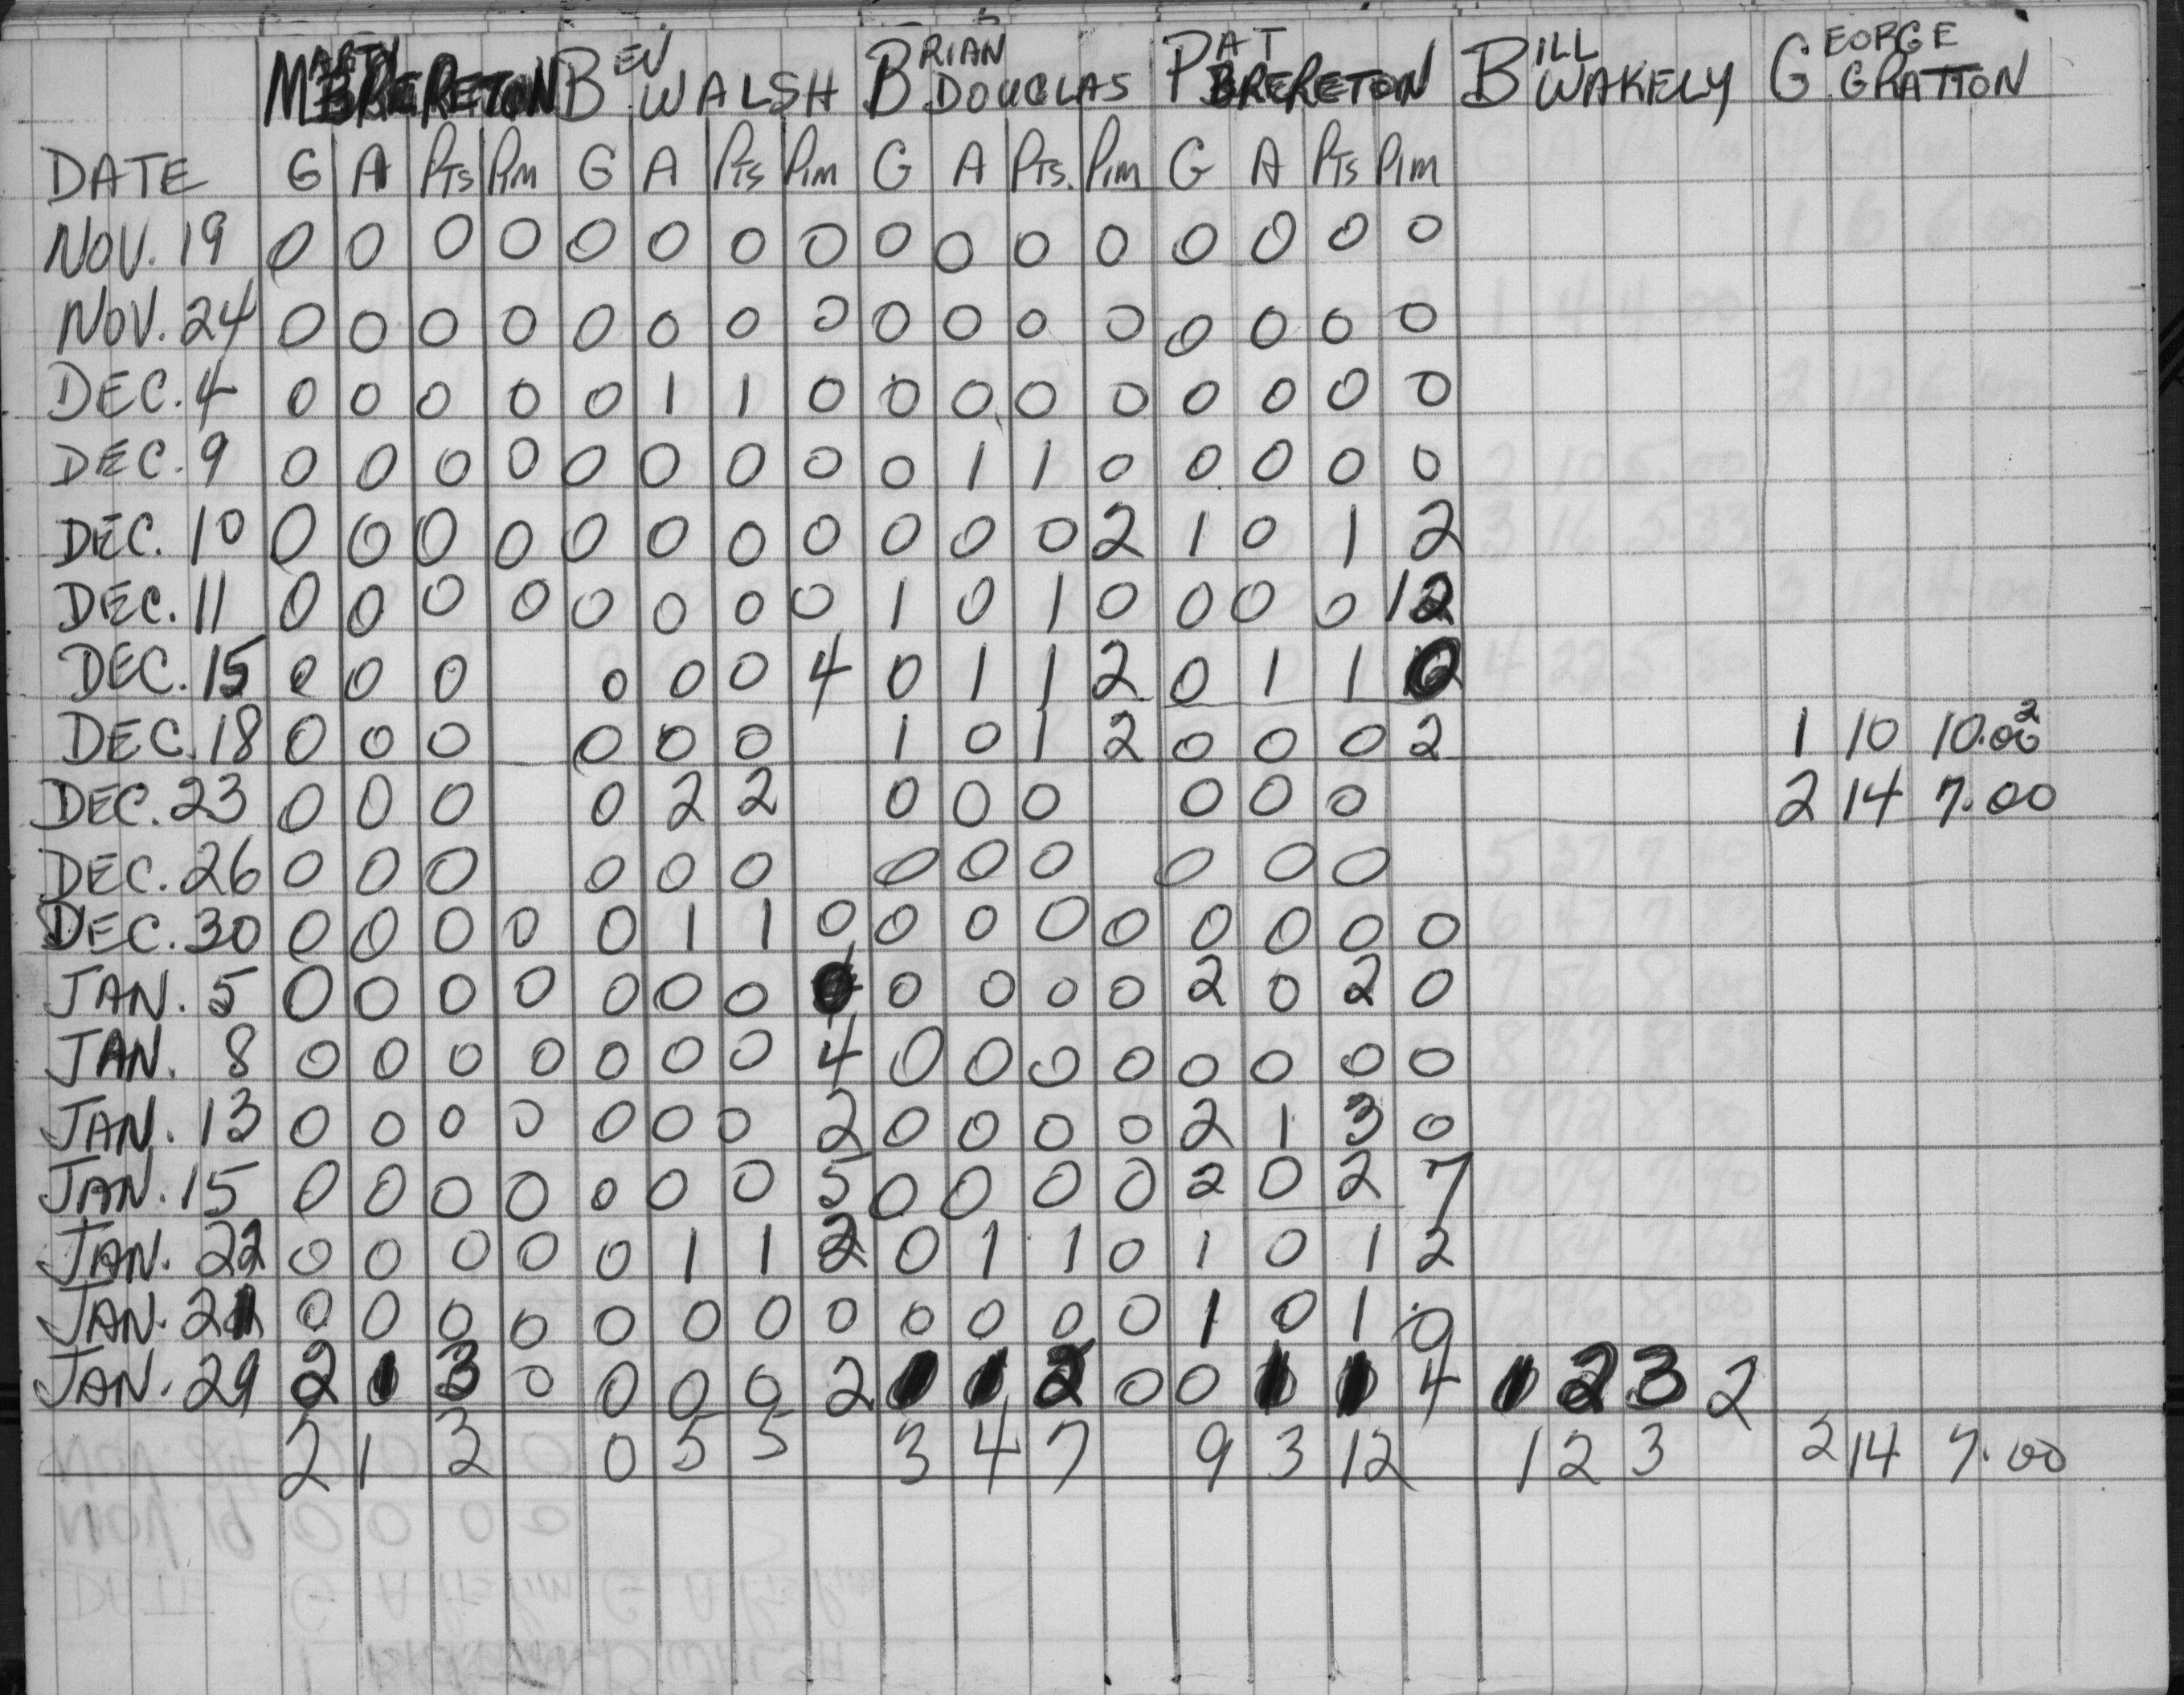 MARTY BRERETON BEV WALSH BRIAN DOUGLAS PAT BRERETON BILL WAKELY GEORGE GRATTON
DATE G A PTS PIM G A PTS PIM G A PTS. PIM G A PTS PIM
NOV. 19 0 0 0 0 0 0 0 0 0 0 0 0 0 0 0 0
NOV. 24 0 0 0 0 0 0 0 0 0 0 0 0 0 0 0 0
DEC. 4 0 0 0 0 0 1 1 0 0 0 0 0 0 0 0 0
DEC. 9 0 0 0 0 0 0 0 0 0 1 1 0 0 0 0 0
DEC. 10 0 0 0 0 0 0 0 0 0 0 0 2 1 0 1 2
DEC. 11 0 0 0 0 0 0 0 0 1 0 1 0 0 0 0 12
DEC. 15 0 0 0 0 0 0 4 0 1 1 2 0 1 1 0
DEC. 18 0 0 0 0 0 0 1 0 1 2 0 0 0 2 1 10 10.00 2
DEC. 23 0 0 0 0 2 2 0 0 0 0 0 0 2 14 7.00
DEC. 26 0 0 0 0 0 0 0 0 0 0 0 0
DEC. 30 0 0 0 0 0 1 1 0 0 0 0 0 0 0 0 0
JAN. 5 0 0 0 0 0 0 0 0 0 0 0 2 0 2 0
JAN. 8 0 0 0 0 0 0 0 4 0 0 0 0 0 0 0 0
JAN. 13 0 0 0 0 0 0 0 2 0 0 0 0 2 1 3 0
JAN. 15 0 0 0 0 0 0 0 5 0 0 0 0 2 0 2 7
JAN. 22 0 0 0 0 0 1 1 2 0 1 1 0 1 0 1 2
JAN. 21 0 0 0 0 0 0 0 0 0 0 0 0 1 0 1 0
JAN. 29 2 1 3 0 0 0 0 2 1 1 2 0 0 1 1 4 1 2 3 2
2 1 3 0 5 5 3 4 7 9 3 12 1 2 3 2 14 7.00